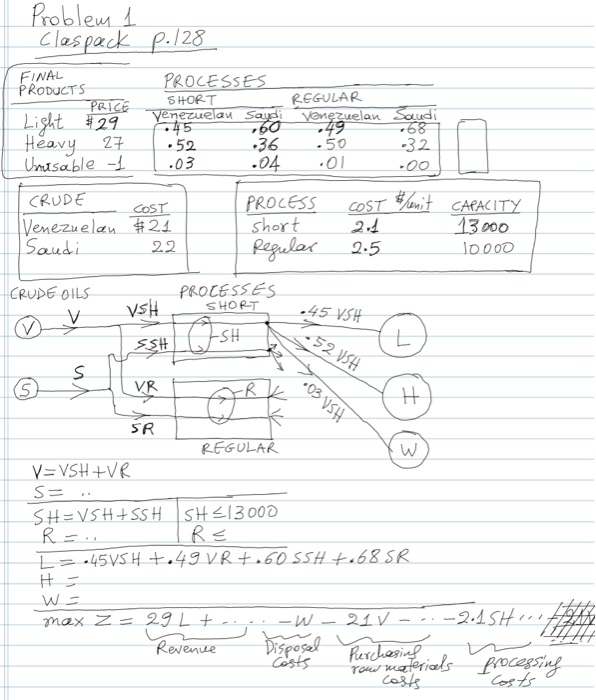 Problem 1
Claspack p.128
FINAL PRODUCTS
PROCESSES
PRICE SHORT REGULAR
Venezuelan Saudi Venezuelan Saudi
Light $29 .45 .60 .49 .68
Heavy 27 .52 .36 .50 .32
Unusable -1 .03 .04 .01 .00
CRUDE COST
Venezuelan $21
Saudi 22
PROCESS COST $/unit CAPACITY
Short 2.1 13000
Regular 2.5 10000
CRUDE OILS PROCESSES
SHORT
V V VSH .45 VSH L
SSH SH .52 VSH
S S VR R .03 VSH H
SR
REGULAR W
V=VSH+VR
S= ..
SH=VSH+SSH SH≤13000
R = .. R≤
L = .45VSH +.49 VR +.60 SSH +.68 SR
H =
W =
max Z = 29L + ..... -W - 21V - ... -2.1SH ...
Revenue Disposal costs Purchasing raw materials costs processing costs